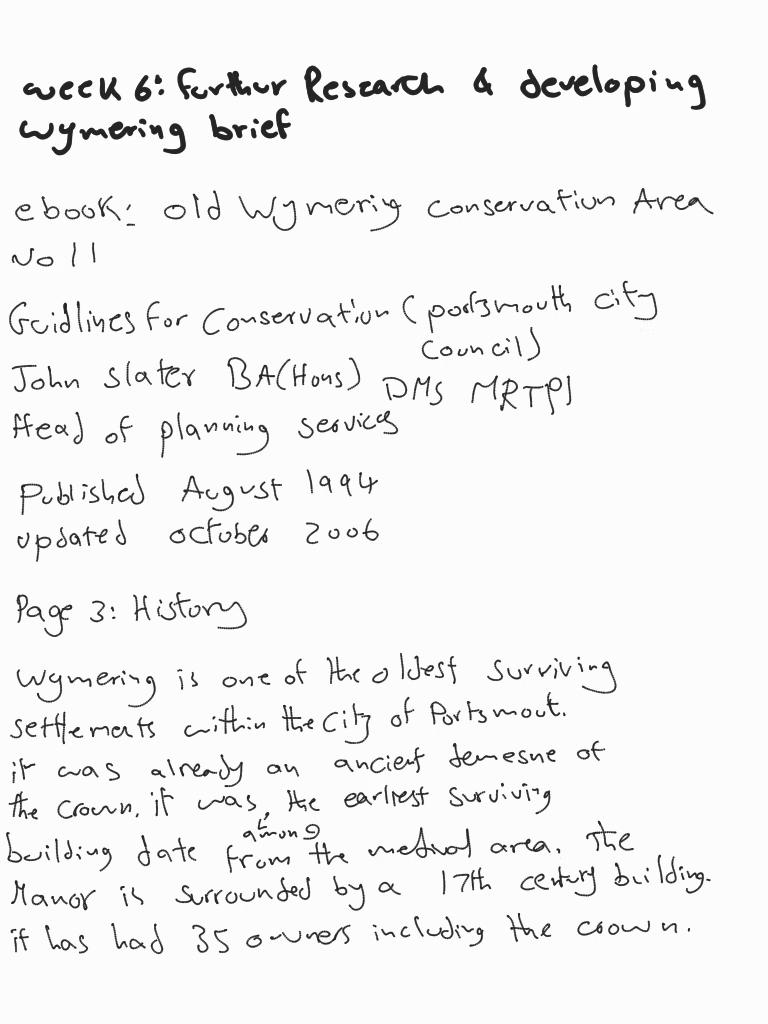 week 6: furthur Research & developing
wymering brief
ebook: old Wymering conservation Area
No 11
Guidlines for Conservation (portsmouth city
Council)
John slater BA(Hons) DMS MRTPI
Head of planning services
Published August 1994
updated october 2006
Page 3: History
Wymering is one of the oldest surviving
settlements within the city of Portsmout.
it was already an ancient demesne of
the crown. it was, the earliest surviving
among
building date from the medival area. The
Manor is surrounded by a 17th century building.
it has had 35 owners including the crown.